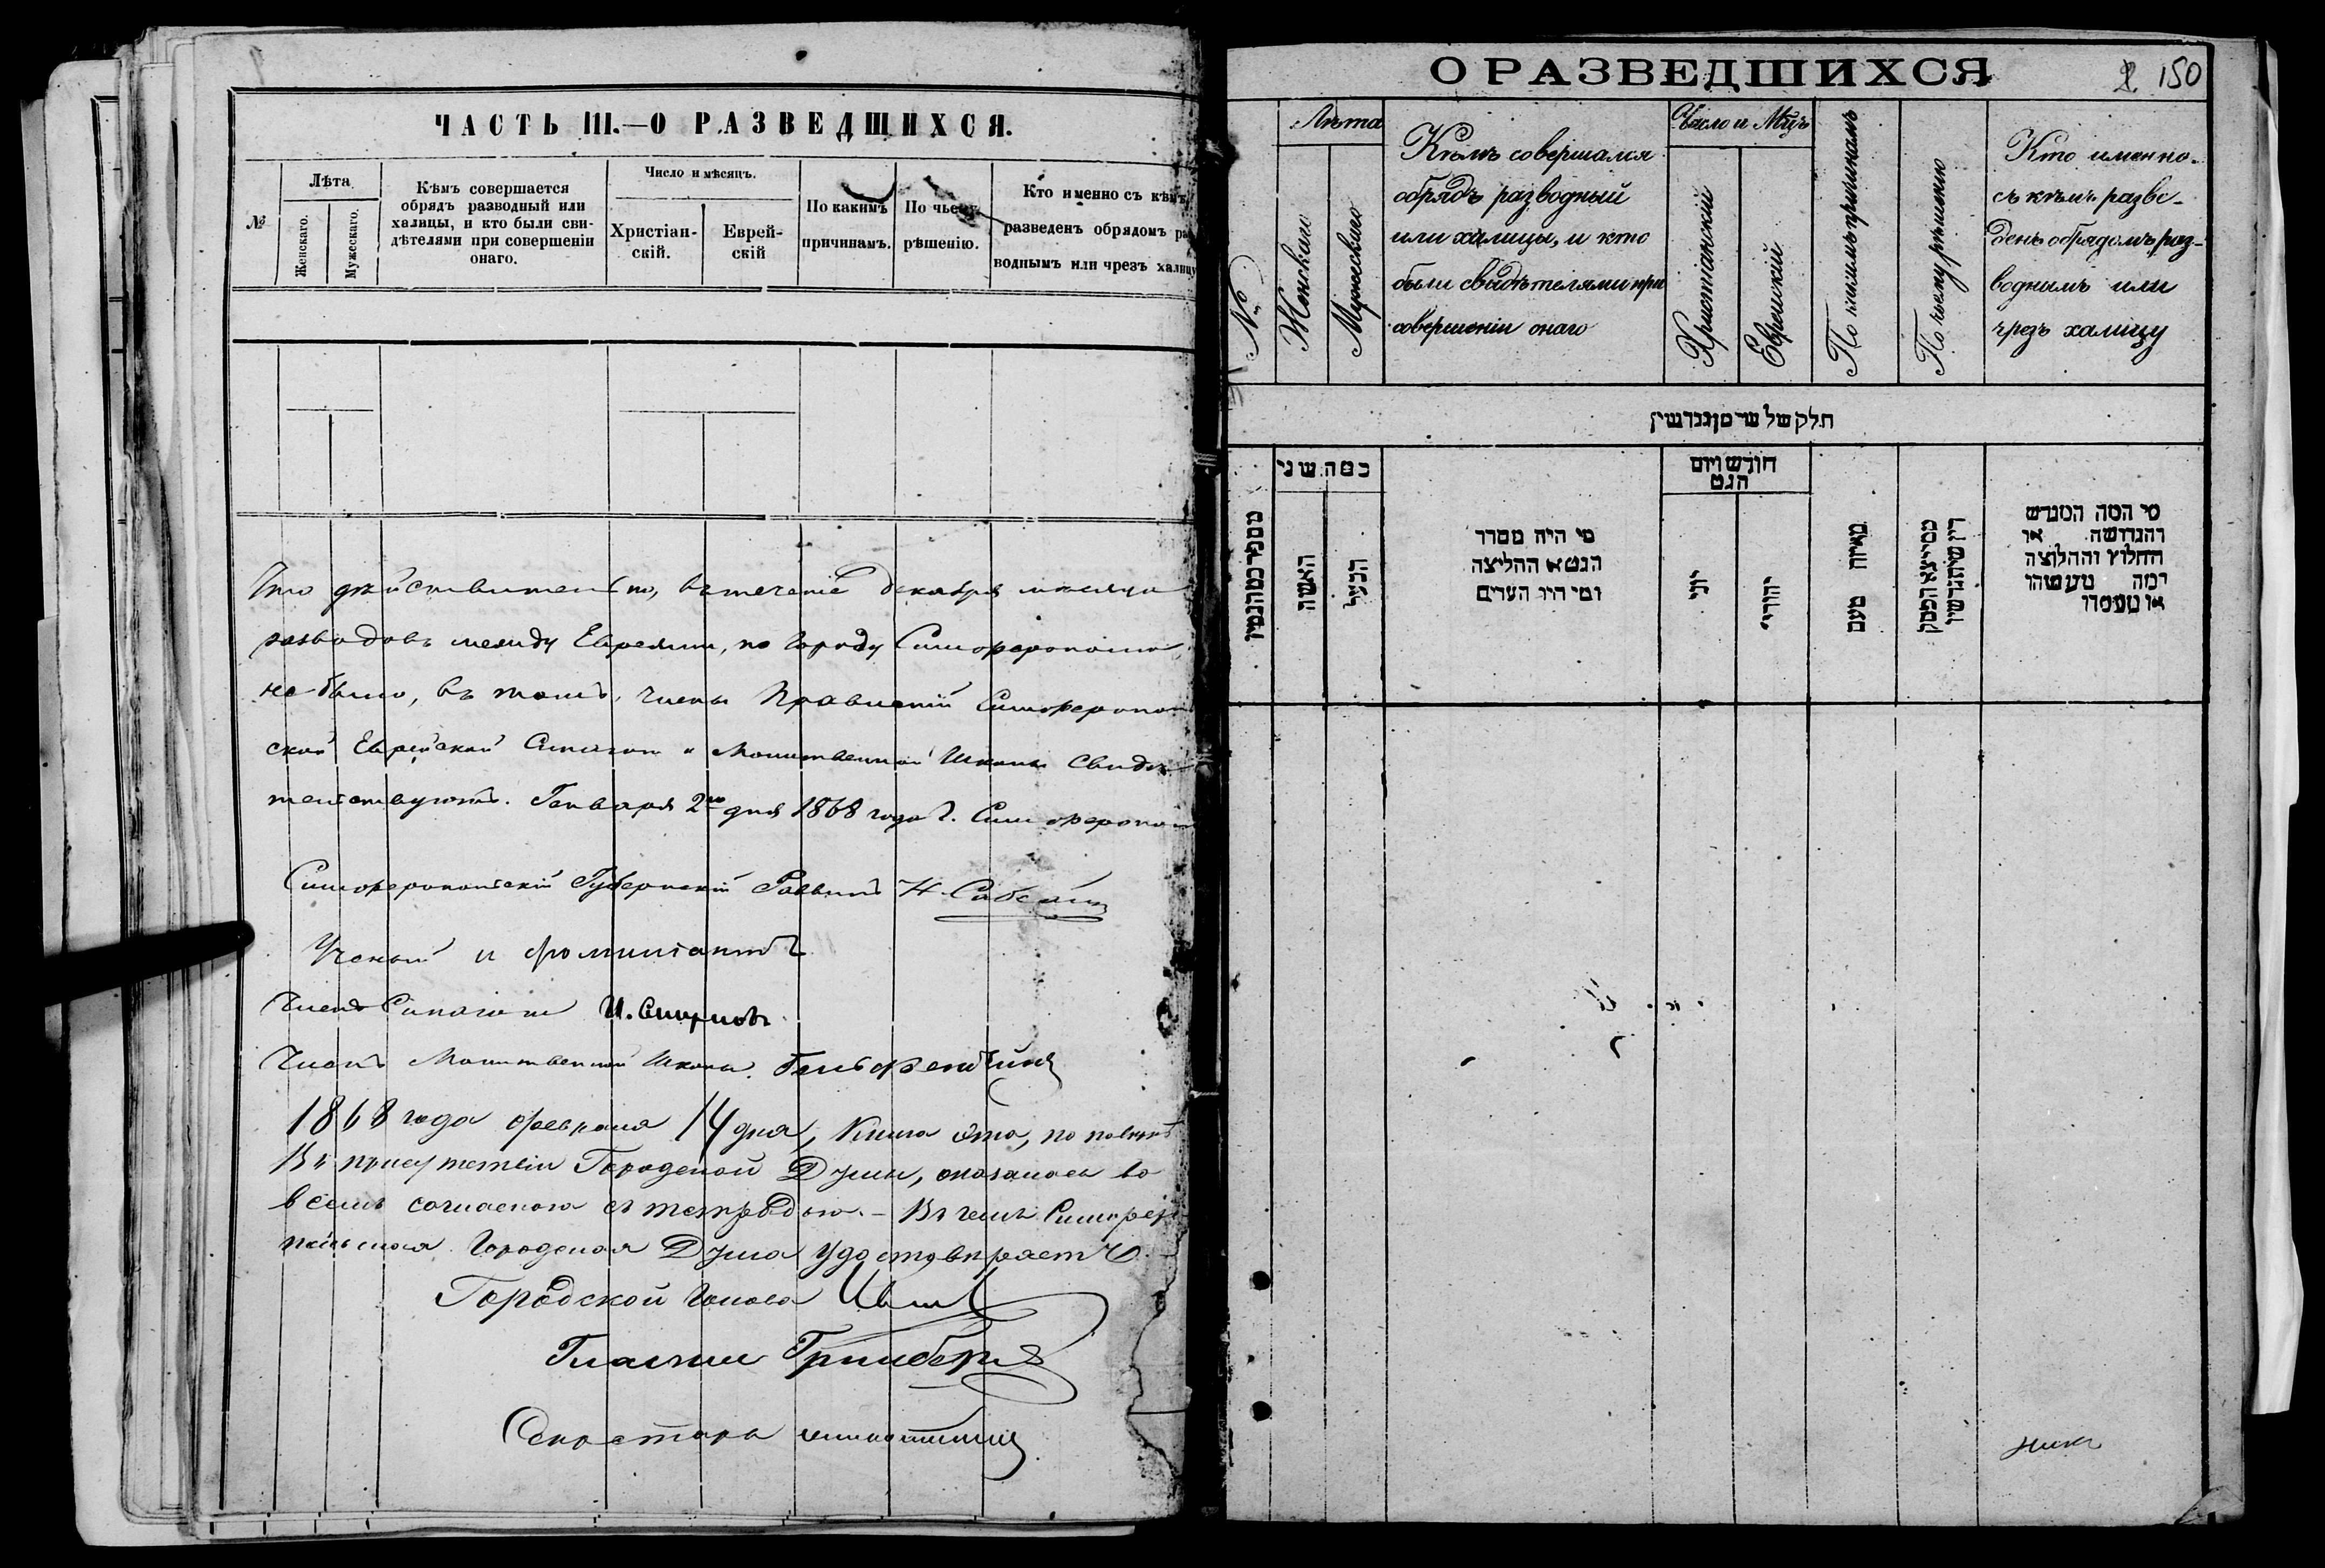 ЧАСТЬ III.—О РАЗВЕДШИХСЯ.
№
Лѣта
Женскаго.
Мужескаго.
Кѣмъ совершается
обрядъ разводный или
халицы, и кто были сви-
дѣтелями при совершеніи
онаго.
Число и мѣсяцъ.
Христіан-
скій.
Еврей-
скій
По какимъ
причинамъ.
По чьему
рѣшенію.
Кто именно съ кѣмъ
разведенъ обрядомъ раз
воднымъ или чрезъ халицу
Что дѣйствительно, въ теченіе декабря мѣсяца
разводовъ между Евреями, по городу Симферополю,
не было, въ томъ, члены Правленій Симферополь
ской Еврейской Синагоги и Молитвенной Школы свидѣ
тельствуютъ. Генваря 2го дня 1868 года г. Симферополь
Симферопольскій Губернскій Раввинъ Н.
Ученый
Членъ Синагоги И.
Членъ Молитвенной Школы
1868 года февраля 14 дня, Книга эта, по повѣркѣ
Въ присутствіи Городской Думы, оказалась во
всемъ согласною съ тетрадью. — Въ чемъ Симферо
польская Городская Дума удостовѣряетъ
Городской Голова
Гласный Гринберг
Секретарь
О РАЗВЕДШИХСЯ
150
№
Лѣта
Женскаго
Мужескаго
Кѣмъ совершался
обрядъ разводный
или халицы, и кто
были свидѣтелями при
совершеніи онаго
Число и Мцъ
Христіанскій
Еврейскій
По какимъ причинамъ
По чьему рѣшенію
Кто именно
съ кѣмъ разве-
денъ обрядомъ раз-
воднымъ или
чрезъ халицу
חלק של
כמה שני
האשה
הבעל
מי היה מסדר
הגט או החליצה
ומי היו העדים
חודש ויום
הגט
יוני
יהודי
באיזה טעם
מי המה המגרש
והגרושה או
החלוץ והחלוצה